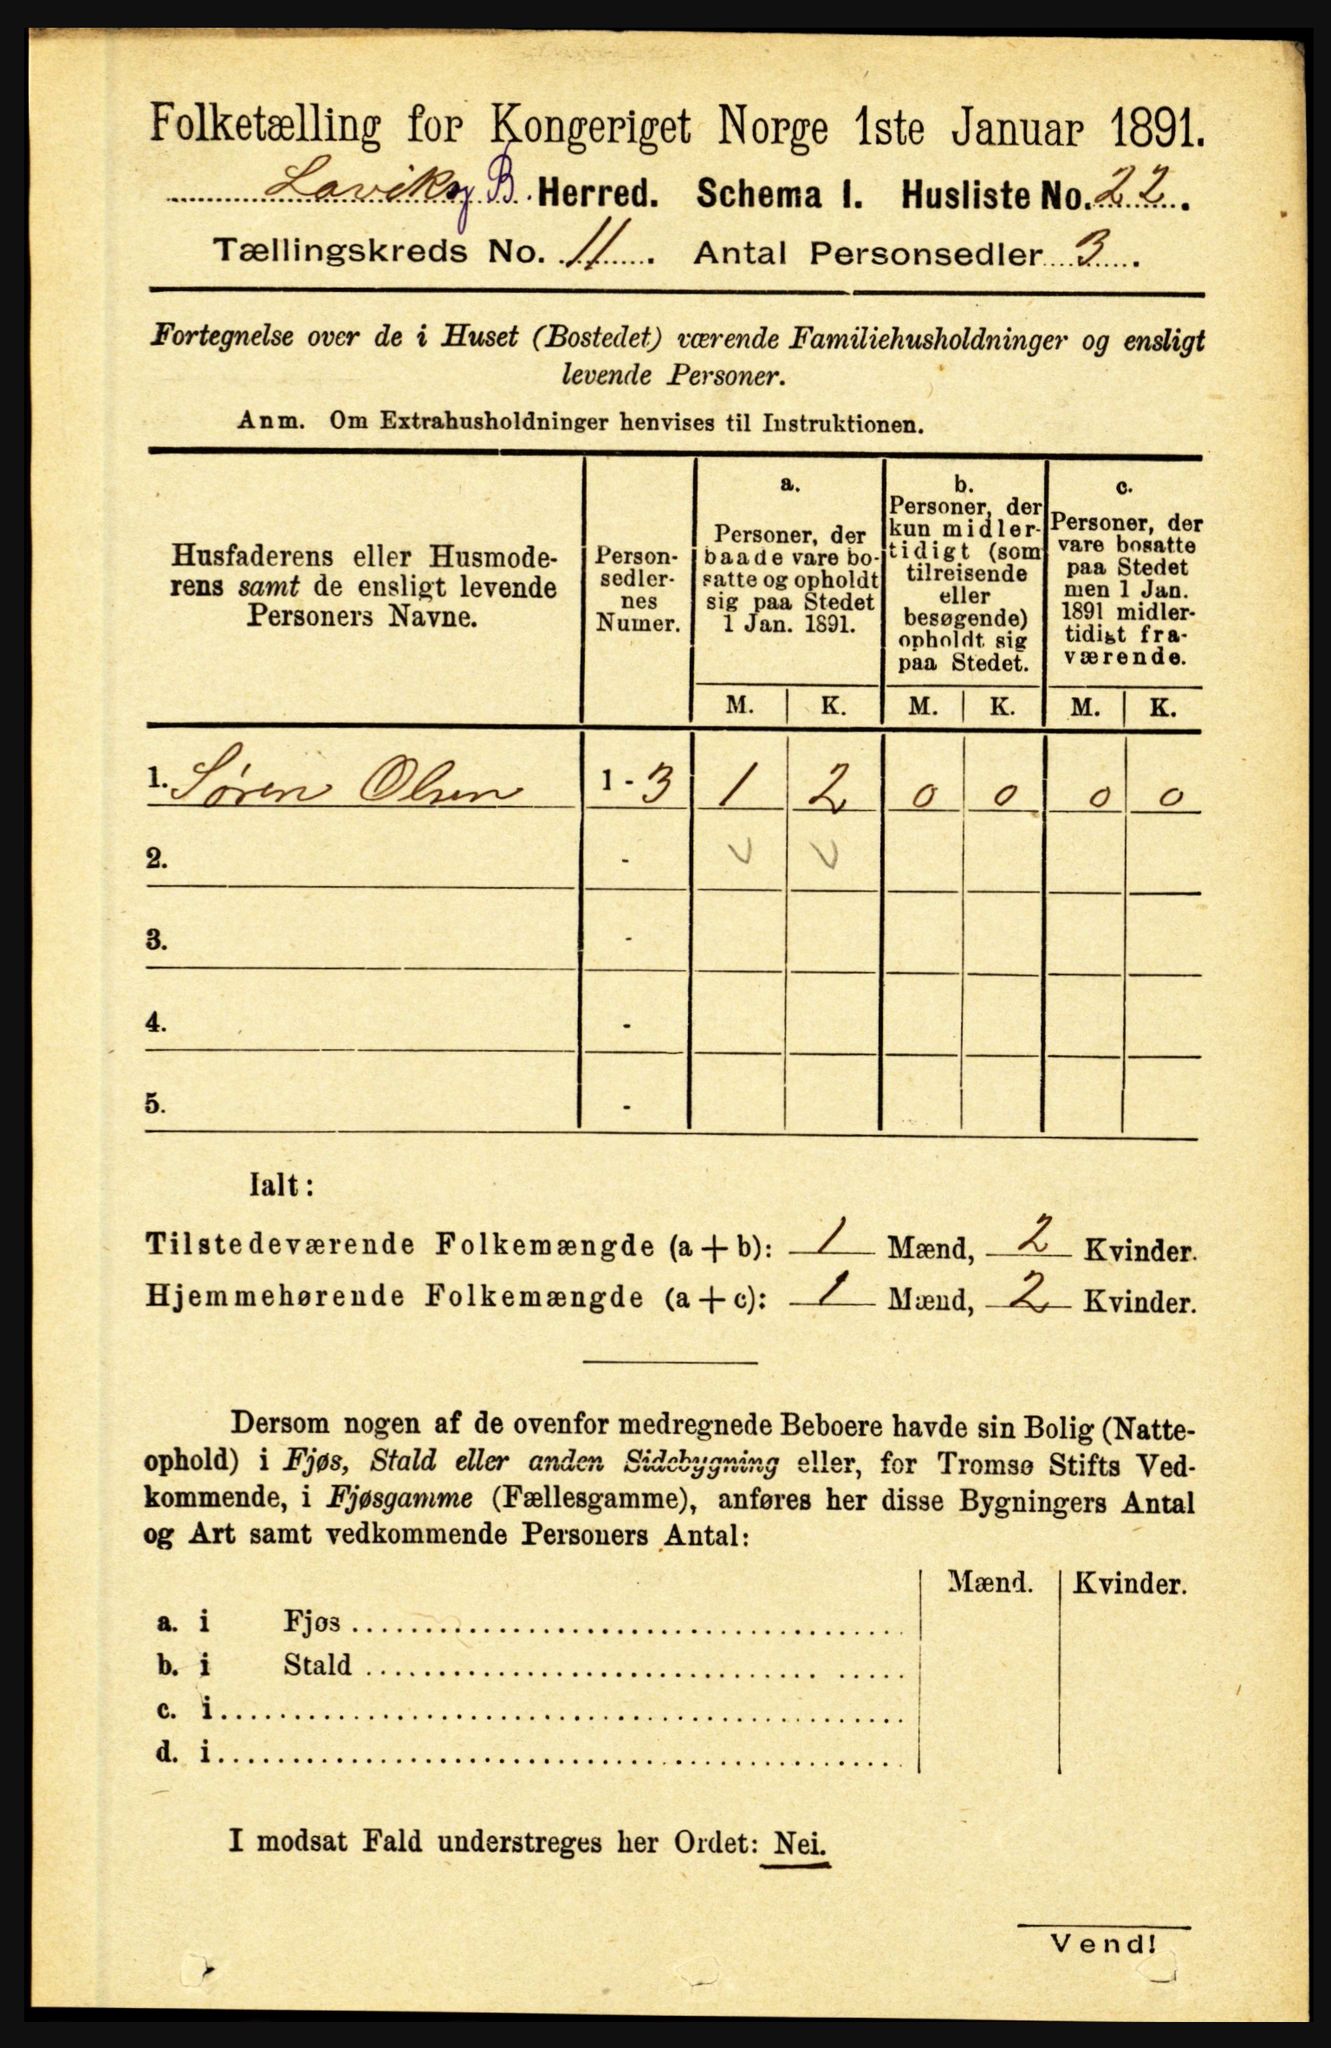 Folketælling for Kongeriget Norge 1ste Januar 1891.
Lavik og B. Herred. Schema I. Husliste No. 22.
Tællingskreds No. 11. Antal Personsedler 3.
Fortegnelse over de i Huset (Bostedet) værende Familiehusholdninger og ensligt
levende Personer.
Anm. Om Extrahusholdninger henvises til Instruktionen.
Husfaderens eller Husmode-
rens samt de ensligt levende
Personers Navne.
Person-
sedler-
nes
Numer.
a.
Personer, der
baade vare bo-
satte og opholdt
sig paa Stedet
1 Jan. 1891.
b.
Personer, der
kun midler-
tidigt (som
tilreisende
eller
besøgende)
opholdt sig
paa Stedet.
c.
Personer, der
vare bosatte
paa Stedet
men 1 Jan.
1891 midler-
tidigt fra-
værende.
M. K. M. K. M. K.
1. Søren Olsen 1 - 3 1 2 0 0 0 0
2. - v v
3. -
4. -
5. -
Ialt:
Tilstedeværende Folkemængde (a + b): 1 Mænd, 2 Kvinder.
Hjemmehørende Folkemængde (a + c): 1 Mænd, 2 Kvinder.
Dersom nogen af de ovenfor medregnede Beboere havde sin Bolig (Natte-
ophold) i Fjøs, Stald eller anden Sidebygning eller, for Tromsø Stifts Ved-
kommende, i Fjøsgamme (Fællesgamme), anføres her disse Bygningers Antal
og Art samt vedkommende Personers Antal:
Mænd. Kvinder.
a. i Fjøs
b. i Stald
c. i
d. i
I modsat Fald understreges her Ordet: Nei.
Vend!